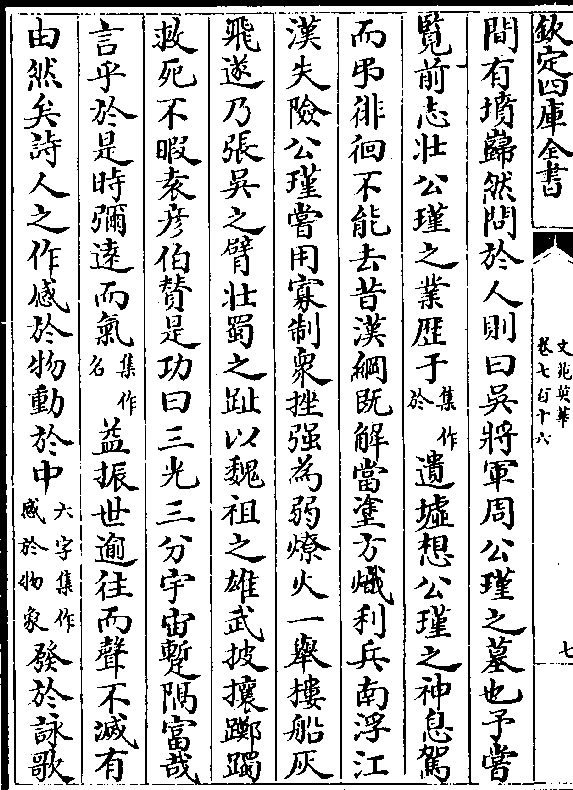 欽定四庫全書
文苑英華
卷七百十六
七
間有墳巋然問於人則曰吳將軍周公瑾之墓也予嘗
覽前志壯公瑾之業歴于集作於遺墟想公瑾之神息駕
而弔徘徊不能去昔漢綱既解當塗方熾利兵南浮江
漢失險公瑾嘗用寡制衆挫强為弱燎火一舉摟船灰
飛遂乃張吳之臂壯蜀之趾以魏祖之雄武披攘躑躅
救死不暇袁彦伯賛是功曰三光三分宇宙蹔隔富哉
言乎於是時彌逺而氣集作名益振世逾往而聲不滅有
由然矣詩人之作感於物動於中六字集作感於物象發於詠歌